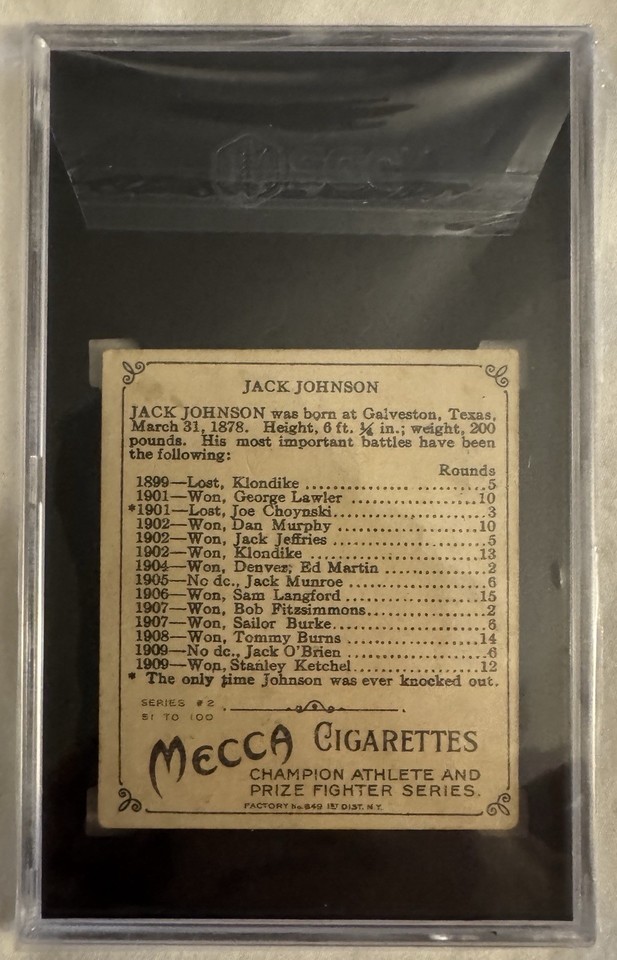 SGC
JACK JOHNSON
JACK JOHNSON was born at Galveston, Texas,
March 31, 1878. Height, 6 ft. ¼ in.; weight, 200
pounds. His most important battles have been
the following:
Rounds
1899—Lost, Klondike ........................5
1901—Won, George Lawler ..................10
*1901—Lost, Joe Choynski....................3
1902—Won, Dan Murphy ...................10
1902—Won, Jack Jeffries .....................5
1902—Won, Klondike .......................13
1904—Won, Denver, Ed Martin .............2
1905—No dc., Jack Munroe ..................6
1906—Won, Sam Langford .................15
1907—Won, Bob Fitzsimmons...............2
1907—Won, Sailor Burke.....................6
1908—Won, Tommy Burns .................14
1909—No dc., Jack O'Brien .................6
1909—Won, Stanley Ketchel................12
* The only time Johnson was ever knocked out.
SERIES #2
51 TO 100
MECCA CIGARETTES
CHAMPION ATHLETE AND
PRIZE FIGHTER SERIES.
FACTORY No. 649 1ST DIST. N.Y.